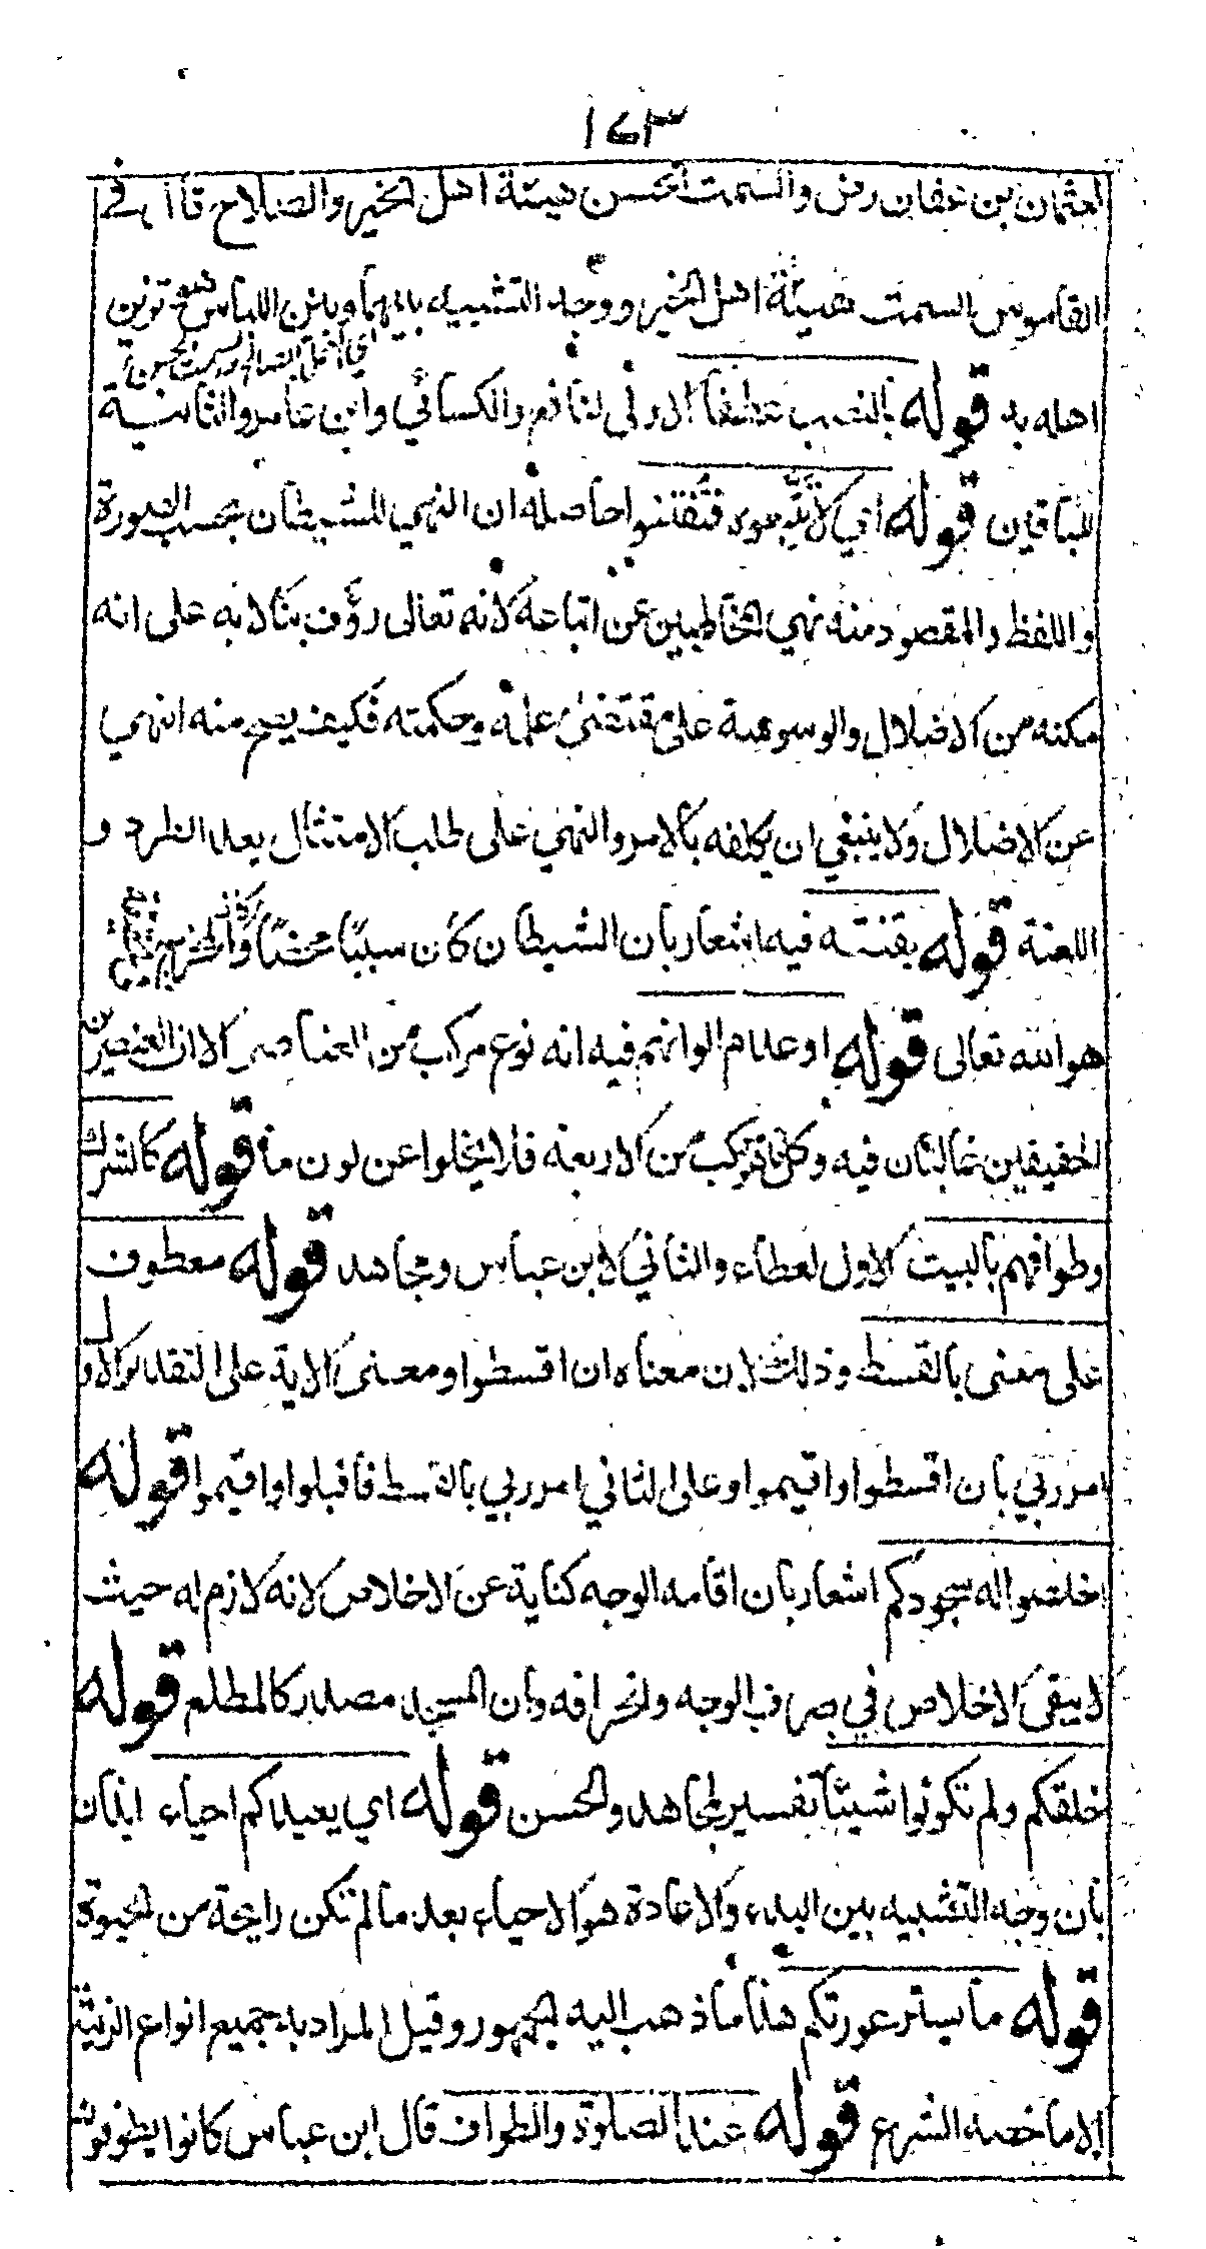 ١٤٣
لعثمان بن عفان رض والسمت احسن هيئة اهل الخير والصلاح قال في
القاموس السمت هيئة اهل الخير ووجه التشبيه بينهما وبين اللباس تزين
اي لاخلق الصالح والسمت الحسن
اهله به قوله بالنصب عطفا الاولى لنافع والكسائي وابن عامر والثانية
للباقين قوله اي لا تتبعوه فتفتنوا حاصله ان النهي للشيطان بحسب الصورة
واللفظ والمقصود منه نهي المخاطبين عن اتباعه لانه تعالى رؤف بنا لا به على انه
مكنه من الاضلال والوسوسة على مقتضى علمه وحكمته فكيف يصح منه النهي
عن الاضلال ولا ينبغي ان يكلفه بالامر والنهي على طلب الامتثال بعد الطرد و
اللعنة قوله بفتنته فيه اشعار بان الشيطان كان سببا محضا والمخرج
هو الله تعالى قوله او عدم الوانهم فيه انه نوع مركب من العناصر الا ان العنصرين
الخفيفين غالبان فيه وكل ما تركب من الاربعة فلا يخلوا عن لون ما قوله كالشرك
وطوافهم بالبيت الاول لعطاء والثاني لابن عباس ومجاهد قوله معطوف
على معنى بالقسط وذلك لان معناه ان اقسطوا ومعنى الاية على التقدير الاول
امر ربي بان اقسطوا واقيموا وعلى الثاني امر ربي بالقسط فاقبلوا واقيموا قوله
اخلصوا له سجودكم اشعار بان اقامة الوجه كناية عن الاخلاص لانه لازم له حيث
لا يبقى الاخلاص في صرف الوجه وانحرافه وان المسجد مصدر كالمطلع قوله
خلقكم ولم تكونوا شيئا تفسير لمجاهد والحسن قوله اي يعيدكم احياء ايذان
بان وجه التشبيه بين البدء والاعادة هو الاحياء بعد ما لم تكن رايحة من الحيوة
قوله ما يستر عورتكم هذا ما ذهب اليه الجمهور وقيل المراد به جميع انواع الزينة
الا ما خصه الشرع قوله عند الصلوة والطواف قال ابن عباس كانوا يطوفون